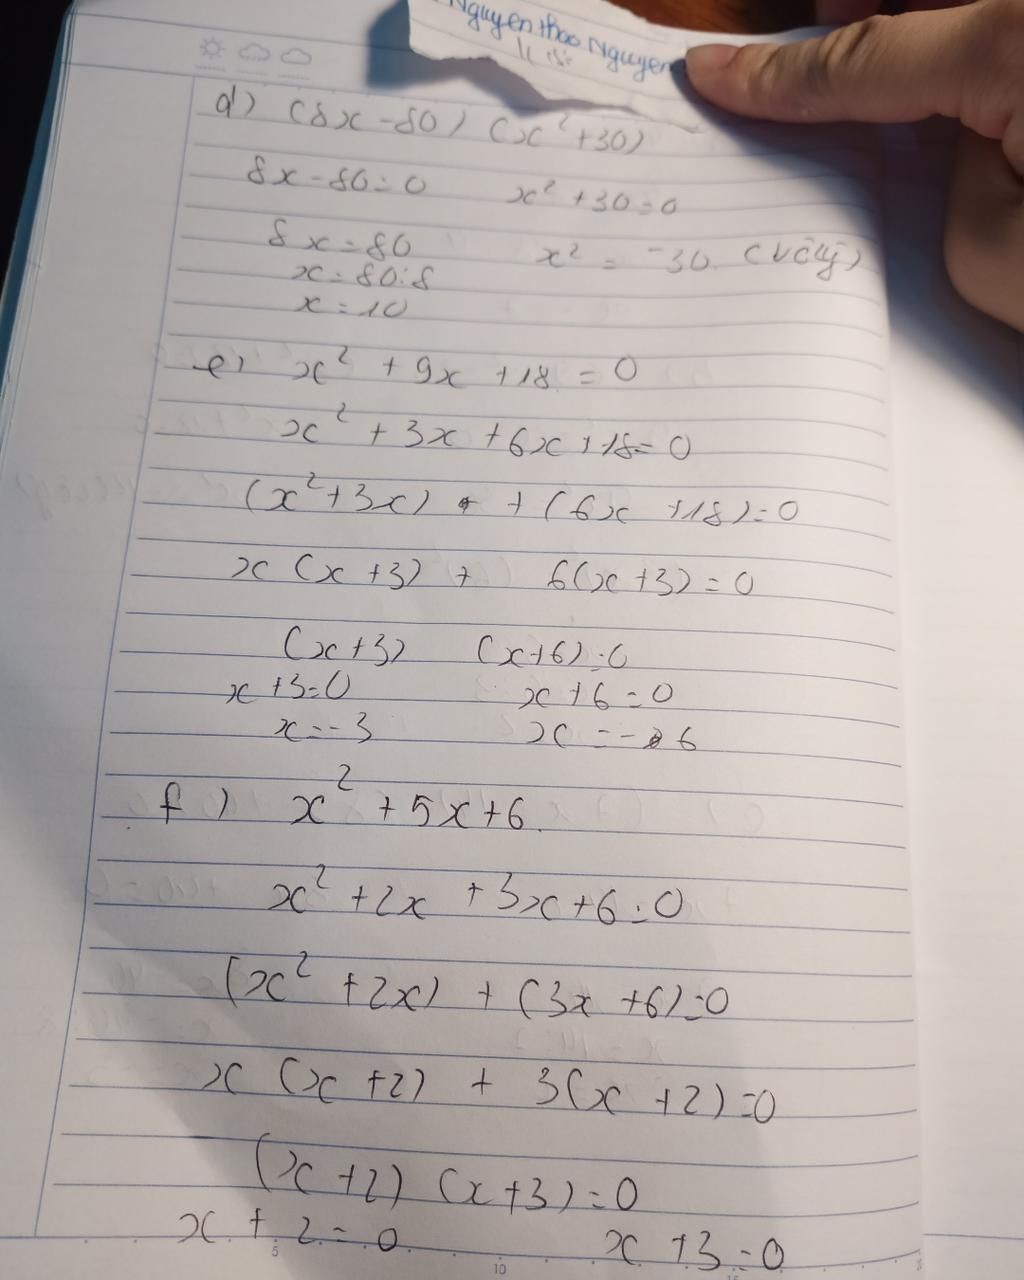 Nguyen thao Nguyen
d) (8x - 80) (x² + 30)
8x - 80 = 0 x² + 30 = 0
8x = 80 x² = -30 (Vô lý)
x = 80 : 8
x = 10
e) x² + 9x + 18 = 0
x² + 3x + 6x + 18 = 0
(x² + 3x) + (6x + 18) = 0
x (x + 3) + 6(x + 3) = 0
(x + 3) (x + 6) = 0
x + 3 = 0 x + 6 = 0
x = -3 x = -6
f) x² + 5x + 6
x² + 2x + 3x + 6 = 0
(x² + 2x) + (3x + 6) = 0
x (x + 2) + 3(x + 2) = 0
(x + 2) (x + 3) = 0
x + 2 = 0 x + 3 = 0
5 10